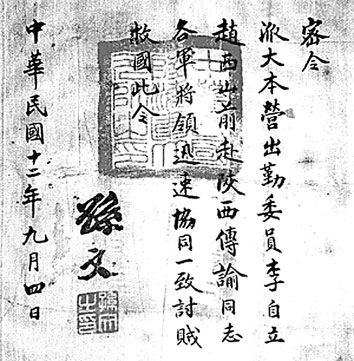 密令
派大本營出勤委員李自立
趙西山前赴陝西傳諭同志
各軍將領迅速協同一致討賊
救國此令
孫文
中華民國十二年九月四日